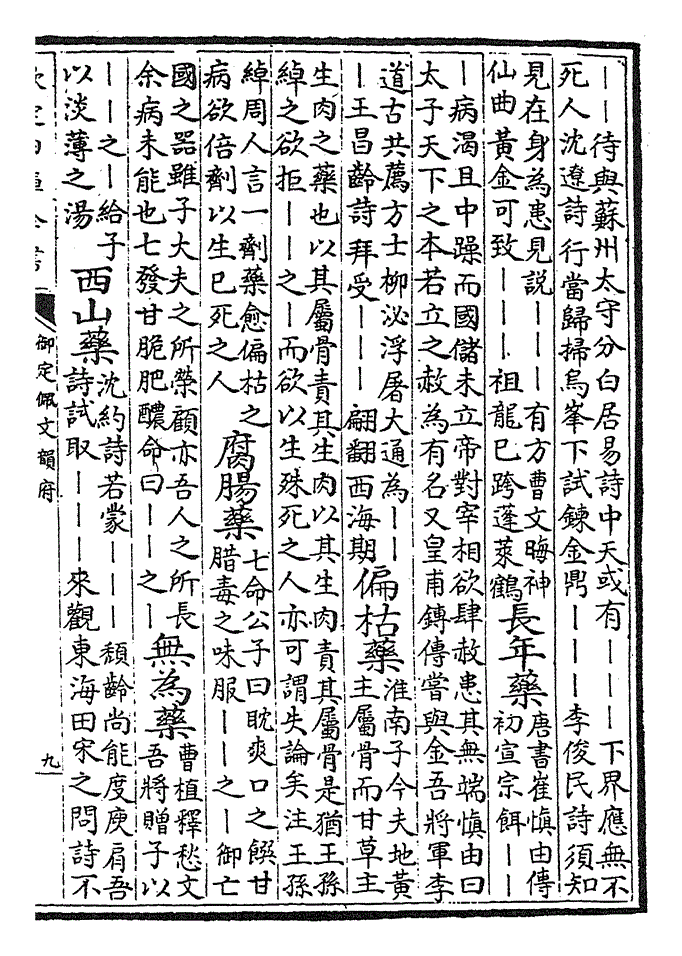 ――待與蘇州太守分白居易詩中天或有―――下界應無不
死人沈遼詩行當歸掃烏峯下試鍊金鼎―――李俊民詩須知
見在身為患見説―――有方曹文晦神
仙曲黃金可致―――祖龍已跨蓬萊鶴
長年藥
唐書崔慎由傳
初宣宗餌――
―病渴且中躁而國儲未立帝對宰相欲肆赦患其無端慎由曰
太子天下之本若立之赦為有名又皇甫鎛傳嘗與金吾將軍李
道古共薦方士柳泌浮屠大通為――
―王昌齡詩拜受―――翩翩西海期
偏枯藥
淮南子今夫地黃
主屬骨而甘草主
生肉之藥也以其屬骨責其生肉以其生肉責其屬骨是猶王孫
綽之欲拒――之―而欲以生殊死之人亦可謂失論矣注王孫
綽周人言一劑藥愈偏枯之
病欲倍劑以生已死之人
腐腸藥
七命公子曰耽爽口之饌甘
腊毒之味服――之―御亡
國之器雖子大夫之所榮顧亦吾人之所長
余病未能也七發甘脆肥醲命曰――之―
無為藥
曹植釋愁文
吾將贈子以
――之―給子
以淡薄之湯
西山藥
沈約詩若蒙―――頹齡尚能度庾肩吾
詩試取―――來觀東海田宋之問詩不
御定佩文韻府
九